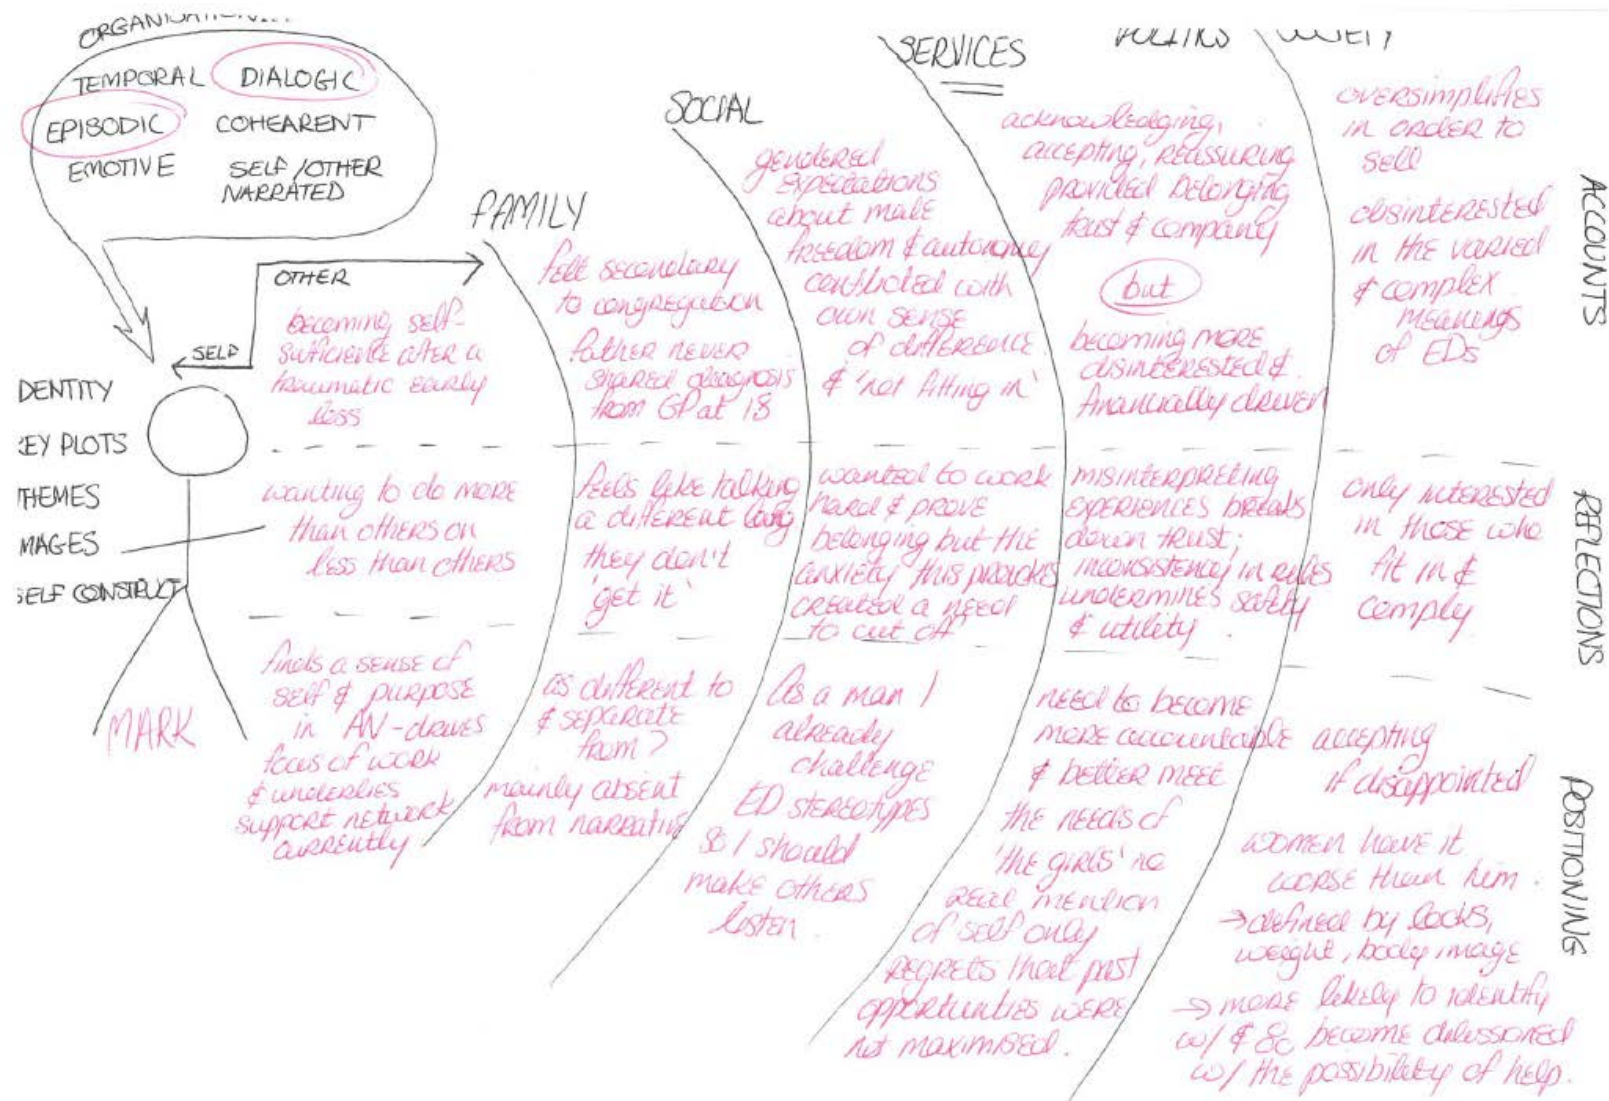 ORGANISATION...
TEMPORAL DIALOGIC
EPISODIC COHEARENT
EMOTIVE SELF/OTHER
NARRATED
OTHER
SELF
DENTITY
EY PLOTS
THEMES
MAGES
SELF CONSTRUCT
MARK
becoming self-
sufficient after a
traumatic early
loss
wanting to do more
than others on
less than others
finds a sense of
self & purpose
in AN - drives
focus of work
& underlies
support network
currently
FAMILY
felt secondary
to congregation
father never
shared diagnosis
from GP at 18
feels like talking
a different lang
they don't
'get it'
as different to
& separate
from?
mainly absent
from narrative
SOCIAL
gendered
expectations
about male
freedom & autonomy
conflicted with
own sense
of difference
& 'not fitting in'
wanted to work
hard & prove
belonging but the
anxiety this provokes
created a need
to cut off
As a man I
already
challenge
ED stereotypes
so I should
make others
listen.
SERVICES
POLITICS
acknowledging,
accepting, reassuring
provided belonging
trust & company
but
becoming more
disinterested &
financially driven
misinterpreting
experiences breaks
down trust;
inconsistency in rules
undermines safety
& utility.
need to become
more accountable
& better meet
the needs of
'the girls' no
real mention
of self only
regrets that past
opportunities were
not maximised.
SOCIETY
oversimplifies
in order to
sell
disinterested
in the varied
& complex
meanings
of EDs
only interested
in those who
fit in &
comply
accepting
if disappointed
women have it
worse than him.
→ defined by looks,
weight, body image
→ more likely to identify
w/ & so become disillusioned
w/ the possibility of help.
ACCOUNTS
REFLECTIONS
POSITIONING